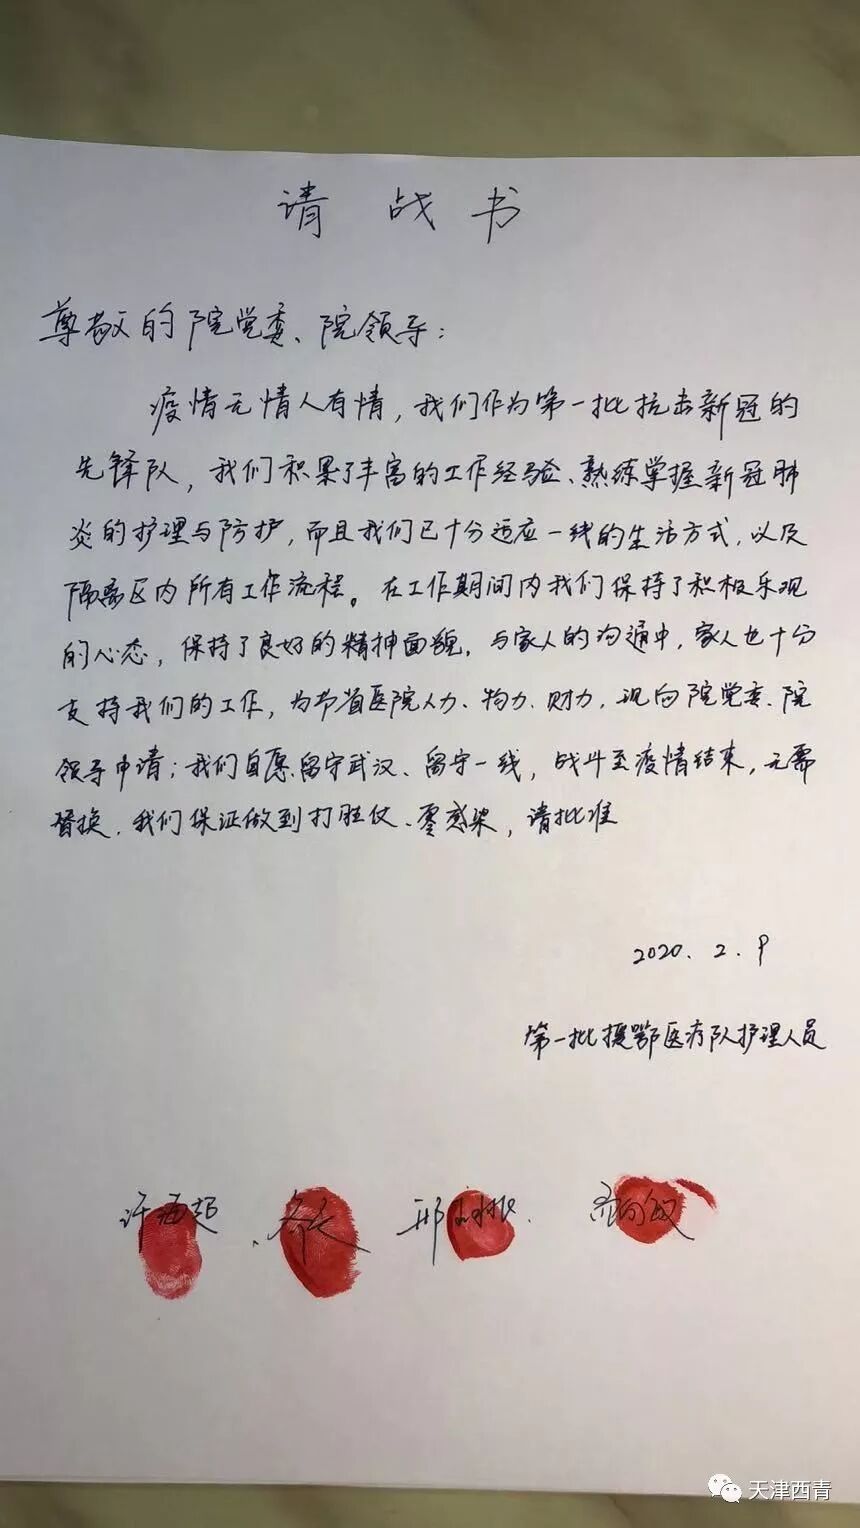 请战书
尊敬的院党委、院领导：
疫情无情人有情，我们作为第一批抗击新冠的
先锋队，我们积累了丰富的工作经验、熟练掌握新冠肺
炎的护理与防护，而且我们已十分适应一线的生活方式，以及
隔离区内所有工作流程。在工作期间内我们保持了积极乐观
的心态，保持了良好的精神面貌，与家人的沟通中，家人也十分
支持我们的工作，为节省医院人力、物力、财力，现向院党委、院
领导申请；我们自愿留守武汉、留守一线，战斗至疫情结束，无需
替换，我们保证做到打胜仗、零感染，请批准
2020.2.9
第一批援鄂医疗队护理人员
天津西青